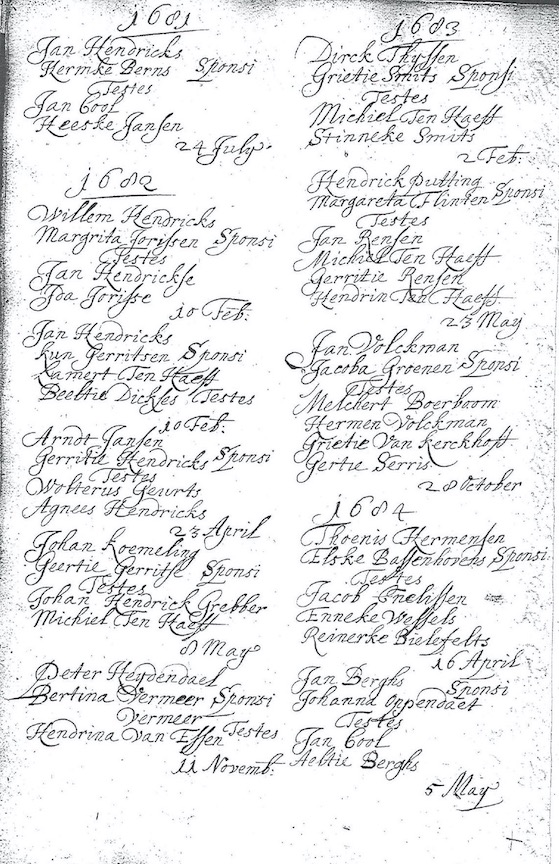 1681
Jan Hendricks
Hermke Berns Sponsi
Testes
Jan Cool
Heeske Jansen
24 July
1682
Willem Hendricks
Margrita Jorissen Sponsi
Testes
Jan Hendrickse
Joa Jorisse
10 Feb:
Jan Hendricks
Kun Gerritsen Sponsi
Lamert Ten Haeff
Beeltie Dickses Testes
10 Feb:
Arndt Jansen
Gerritie Hendricks Sponsi
Testes
Wolterus Geurts
Agnees Hendricks
23 April
Johan Koemeling
Geertie Gerritse Sponsi
Testes
Johan Hendrick Grebber
Michiel Ten Haeff
8 May
Peter Heydendael
Bertina Vermeer Sponsi
Vermeer
Hendrina Van Essen Testes
11 Novemb:
1683
Dirck Thyssen
Grietie Smits Sponsi
Testes
Michiel Ten Haeff
Stinneke Smits
2 Feb:
Hendrick Putting
Margareta Flinten Sponsi
Testes
Jan Rensen
Michiel Ten Haeff
Gerritie Rensen
Hendrin Ten Haeff
23 May
Jan Volckman
Jacoba Groenen Sponsi
Testes
Melchert Boerboom
Hermen Volckman
Grietie Van Kerckhoff
Gertie Serris
28 October
1684
Thoenis Hermensen
Elske Bassenhovens Sponsi
Testes
Jacob
Enneke Wessels
Reinerke Bielefelts
16 April
Jan Berghs
Sponsi
Johanna Oppendaet
Testes
Jan Cool
Aeltie Berghs
5 May